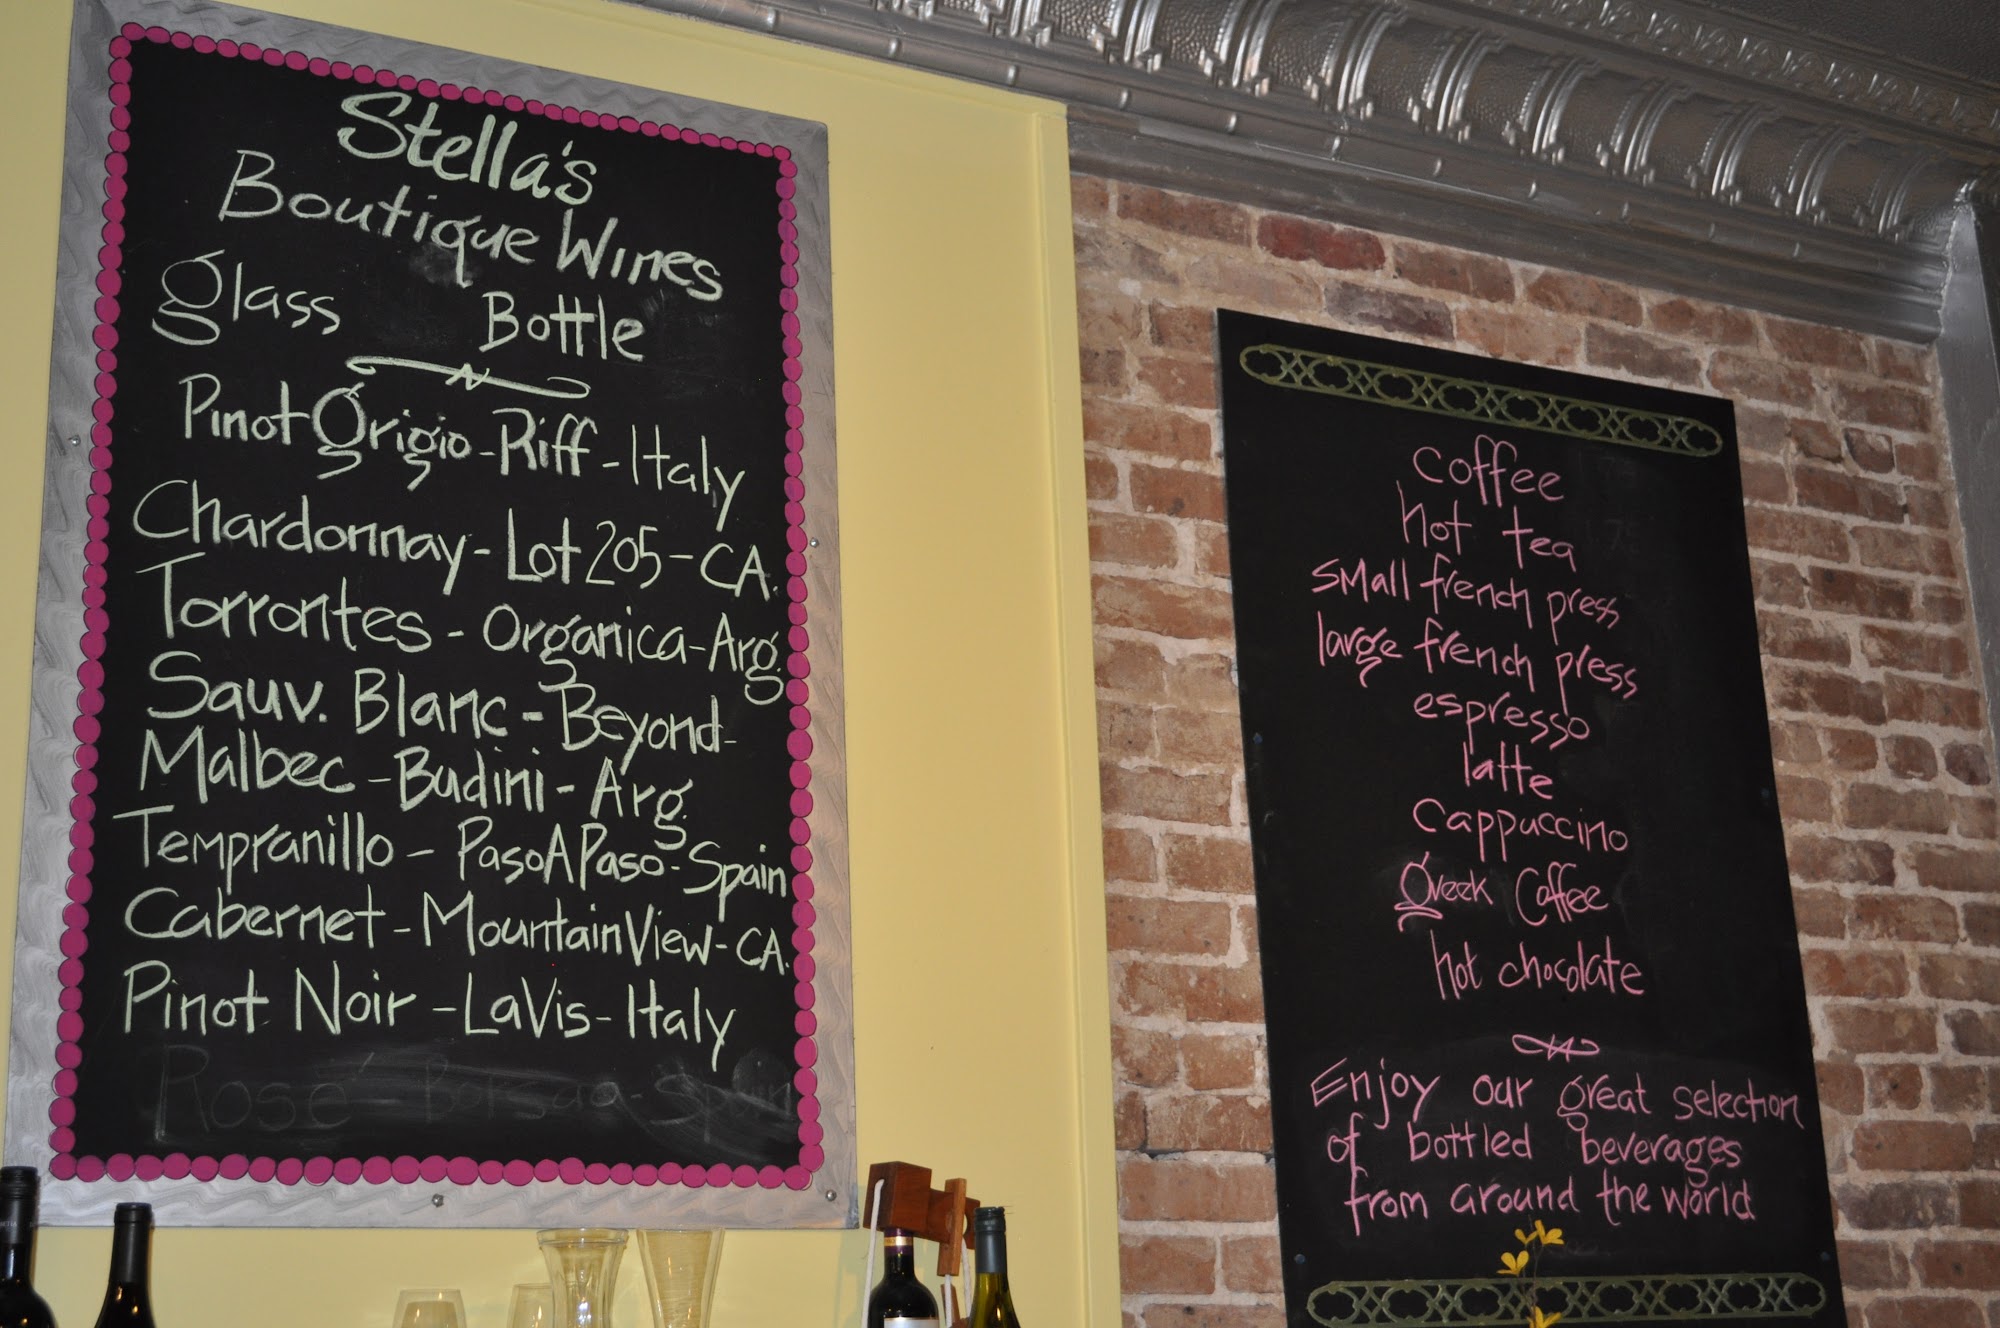 Stella's
Boutique Wines
glass Bottle
Pinot Grigio - Riff - Italy
Chardonnay - Lot 205 - CA.
Torrontes - Organica - Arg.
Sauv. Blanc - Beyond -
Malbec - Budini - Arg.
Tempranillo - Paso A Paso - Spain
Cabernet - Mountain View - CA.
Pinot Noir - La Vis - Italy
Rosé - Borsao - Spain
coffee
hot tea
small french press
large french press
espresso
latte
cappuccino
greek coffee
hot chocolate
Enjoy our great selection
of bottled beverages
from around the world